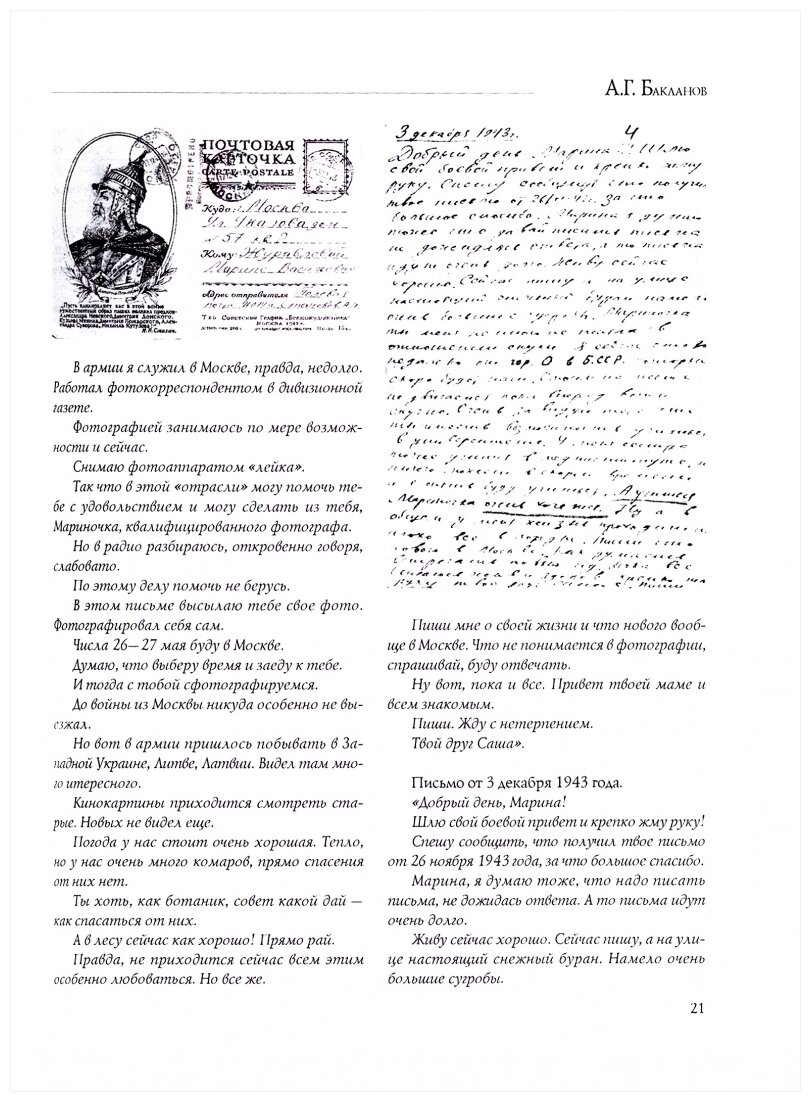 А.Г. Бакланов
ПОЧТОВАЯ
КАРТОЧКА
CARTE POSTALE
Куда: Москва
№ 57 кв 2
Кому: Журавлевой
Марине
Адрес отправителя
"Пусть вдохновляет вас в этой войне
мужественный образ наших великих предков-
Александра Невского, Димитрия Донского,
Кузьмы Минина, Димитрия Пожарского, Алек-
сандра Суворова, Михаила Кутузова"!
И.В. Сталин.
МОСКВА 1943 г.
В армии я служил в Москве, правда, недолго.
Работал фотокорреспондентом в дивизионной
газете.
Фотографией занимаюсь по мере возмож-
ности и сейчас.
Снимаю фотоаппаратом «лейка».
Так что в этой «отрасли» могу помочь те-
бе с удовольствием и могу сделать из тебя,
Мариночка, квалифицированного фотографа.
Но в радио разбираюсь, откровенно говоря,
слабовато.
По этому делу помочь не берусь.
В этом письме высылаю тебе свое фото.
Фотографировал себя сам.
Числа 26—27 мая буду в Москве.
Думаю, что выберу время и заеду к тебе.
И тогда с тобой сфотографируемся.
До войны из Москвы никуда особенно не вы-
езжал.
Но вот в армии пришлось побывать в За-
падной Украине, Литве, Латвии. Видел там мно-
го итересного.
Кинокартины приходится смотреть ста-
рые. Новых не видел еще.
Погода у нас стоит очень хорошая. Тепло,
но у нас очень много комаров, прямо спасения
от них нет.
Ты хоть, как ботаник, совет какой дай —
как спасаться от них.
А в лесу сейчас как хорошо! Прямо рай.
Правда, не приходится сейчас всем этим
особенно любоваться. Но все же.
3 декабря 1943г. 4
Добрый день Марина! Шлю
свой боевой привет и крепко жму
руку. Спешу сообщить что получил
твое письмо от 26/XI-43г. за что
большое спасибо. Марина я думаю
тоже что давай писать письма
не дожидаясь ответа, а то письма
идут очень долго. Живу сейчас
хорошо. Сейчас пишу а на улице
настоящий снежный буран намело
очень большие сугробы. Мариночка
ты меня
отношении скуки. Я сейчас стою
недалеко от гор. О в БССР. которы
скоро будет наш. Стоим на месте
не двигаемся пока вперед
скучно.
в университете. У меня сестра
тоже учится в пединституте, и
ничего
буду учиться. А учиться
Мариночка очень хочется. Ну а в
общем у меня жизнь проходит
плохо все в порядке. Пиши что
нового в Москве. Как думаешь
встречать новый год.
Пиши мне о своей жизни и что нового вооб-
ще в Москве. Что не понимается в фотографии,
спрашивай, буду отвечать.
Ну вот, пока и все. Привет твоей маме и
всем знакомым.
Пиши. Жду с нетерпением.
Твой друг Саша».
Письмо от 3 декабря 1943 года.
«Добрый день, Марина!
Шлю свой боевой привет и крепко жму руку!
Спешу сообщить, что получил твое письмо
от 26 ноября 1943 года, за что большое спасибо.
Марина, я думаю тоже, что надо писать
письма, не дожидась ответа. А то письма идут
очень долго.
Живу сейчас хорошо. Сейчас пишу, а на ули-
це настоящий снежный буран. Намело очень
большие сугробы.
21